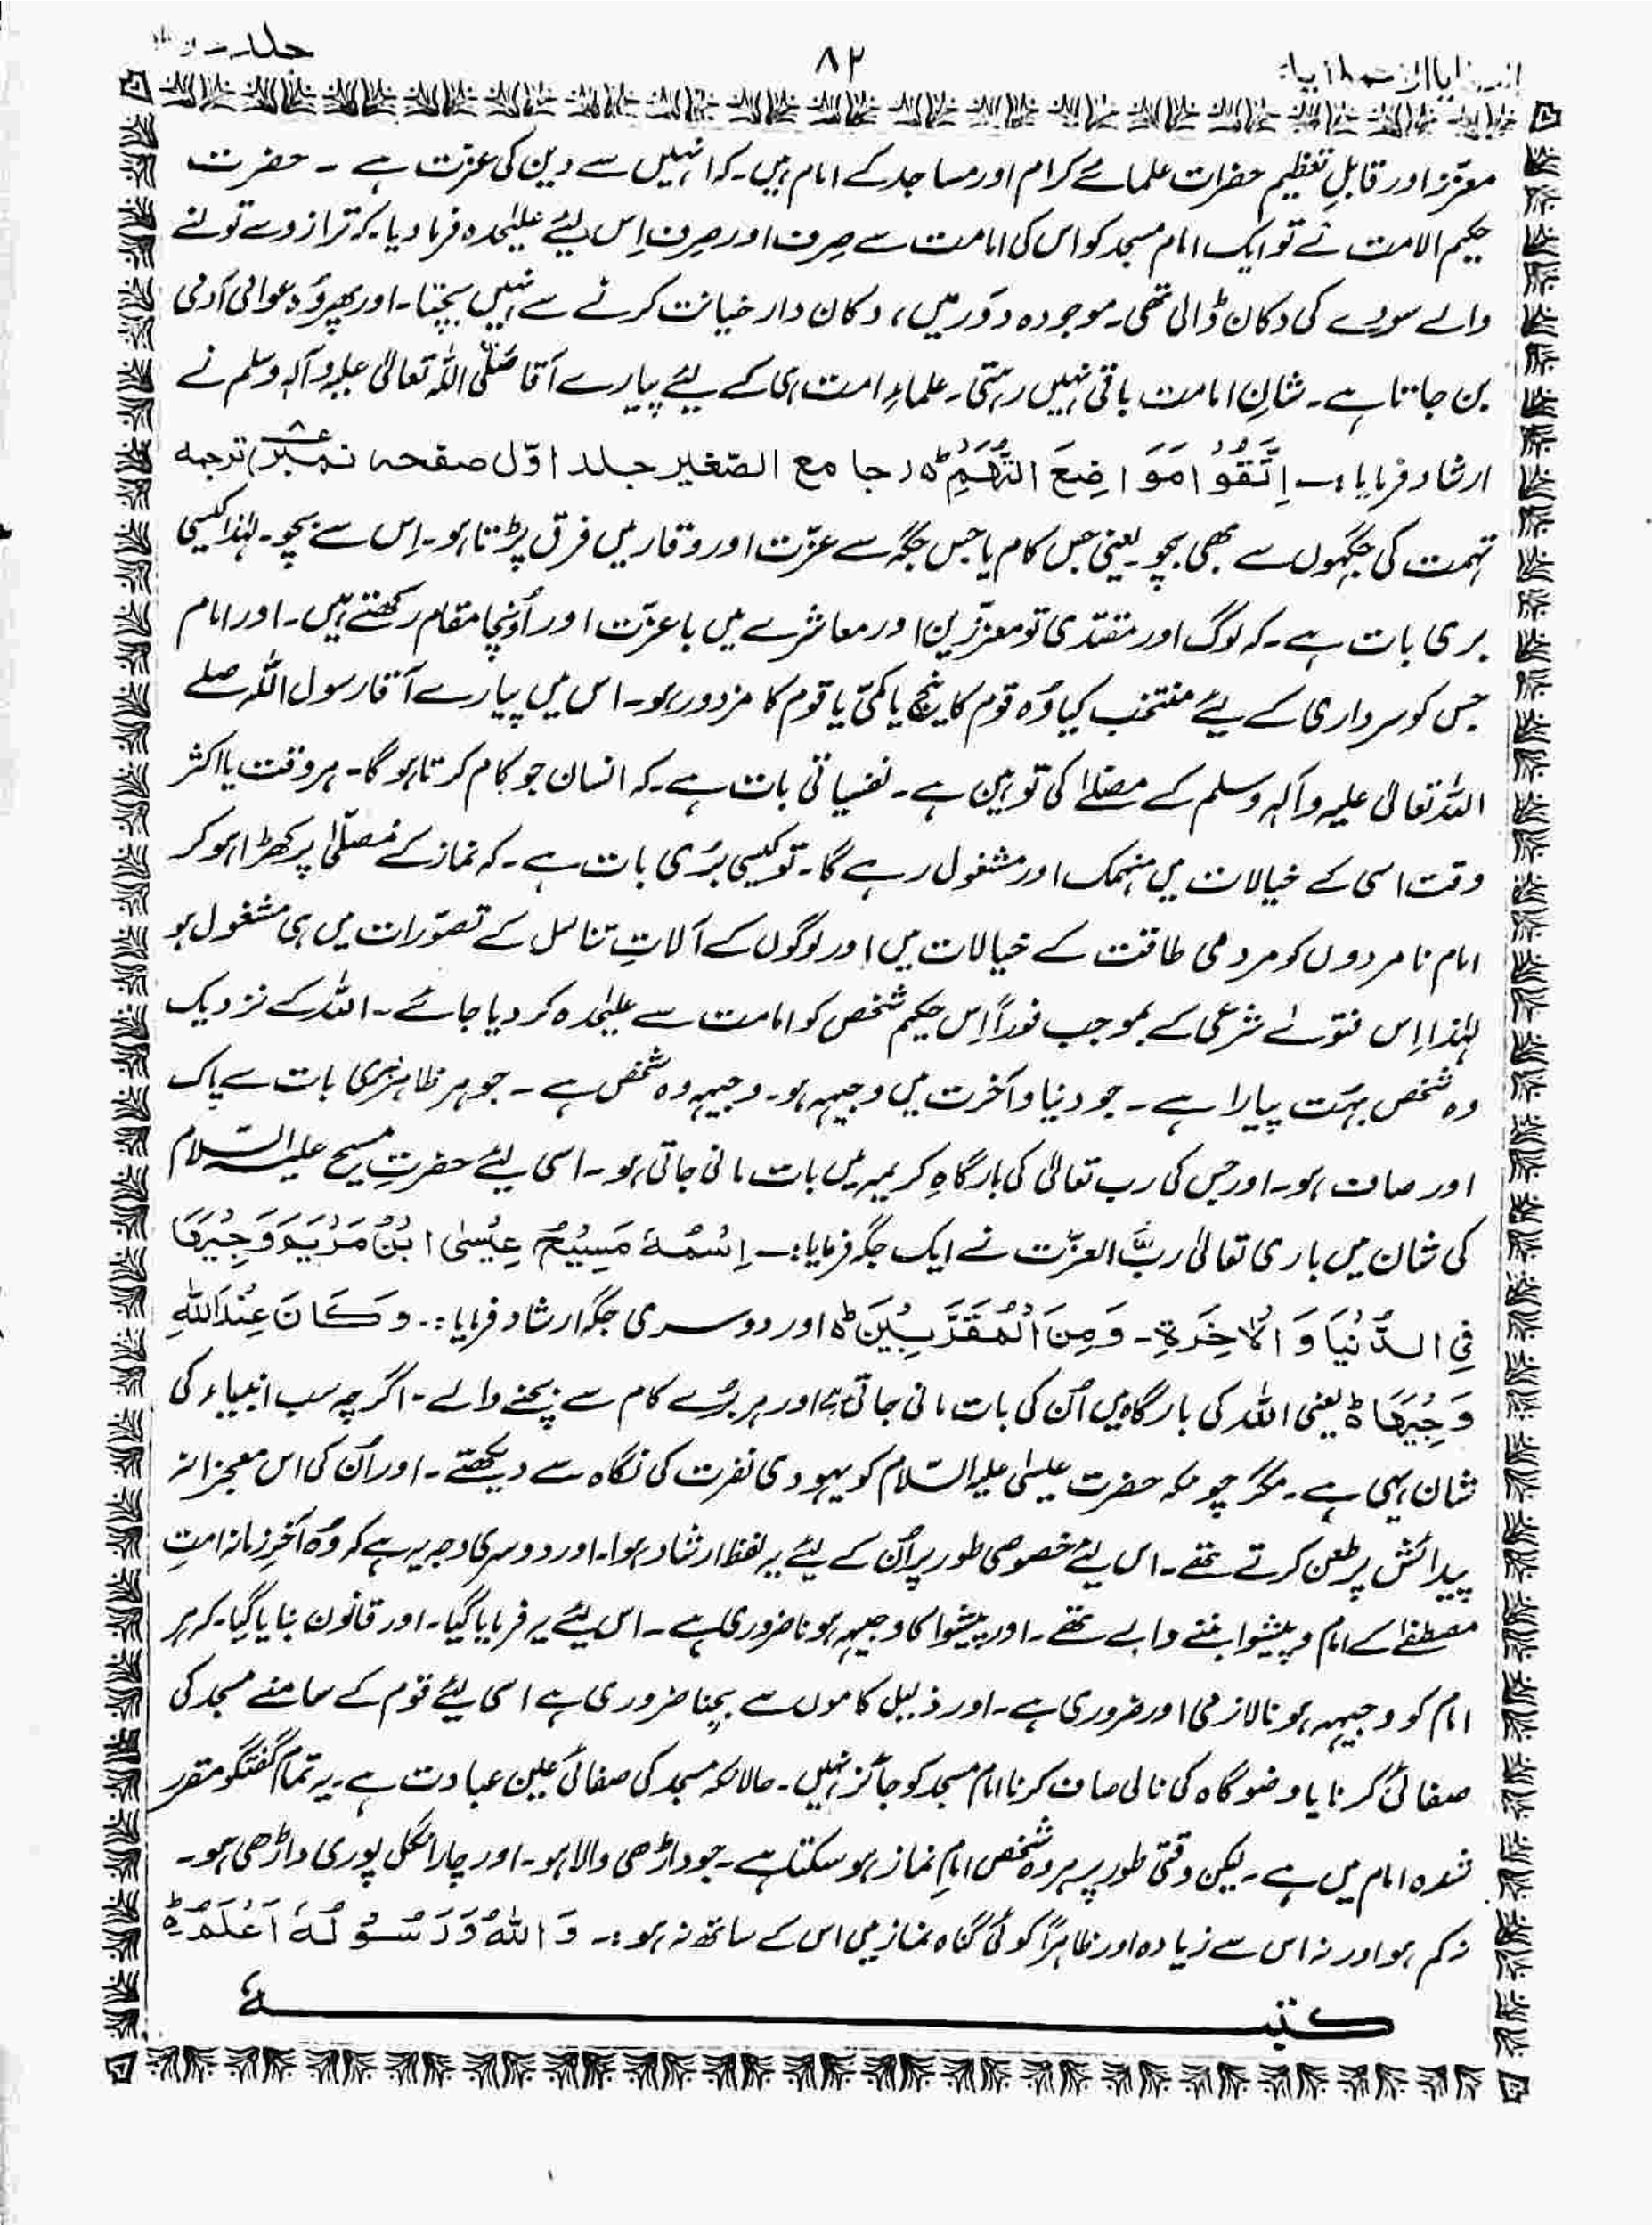 ۸۲
جلد
معزّز اور قابلِ تعظیم حضرات علمائے کرام اور مساجد کے امام ہیں۔ کہ انہیں سے دین کی عزت ہے ۔ حضرت
حکیم الامت نے تو ایک امام مسجد کو اس کی امامت سے صِرف اور صِرف اِس لیئے علیٰحدہ فرما دیا۔ کہ ترازو سے تولنے
والے سودے کی دکان ڈالی تھی۔ موجودہ دَور میں، دکان دار خیانت کرنے سے نہیں بچتا۔ اور پھر وُہ عوامی آدمی
بن جاتا ہے۔ شانِ امامت باقی نہیں رہتی۔ علماءِ امت ہی کے لیئے پیارے آقا صَلّی اللہ تعالیٰ علیہ وآلہٖ وسلم نے
ارشاد فرمایا :۔ اِتَّقُوْا مَوَاضِعَ التُّهَمِؕ ہ (جامع الصّغیر جلد اوّل صفحہ نمبر ۸) ترجمہ
تہمت کی جگہوں سے بھی بچو۔ یعنی جس کام یا جس جگہ سے عزّت اور وقار میں فرق پڑتا ہو۔ اِس سے بچو۔ لہٰذا کیسی
بری بات ہے۔ کہ لوگ اور مقتدی تو معزّزین اور معاشرے میں باعزّت اور اُونچا مقام رکھتے ہیں۔ اور امام
جس کو سرداری کے لیئے منتخب کیا وُہ قوم کا پنج یا کمّی یا قوم کا مزدور ہو۔ اس میں پیارے آقا رسول اللہ صلے
اللہ تعالیٰ علیہ وآلہٖ وسلم کے مصلےٰ کی توہین ہے۔ نفسیاتی بات ہے۔ کہ انسان جو کام کرتا ہو گا۔ ہر وقت یا اکثر
وقت اسی کے خیالات میں منہمک اور مشغول رہے گا۔ تو کیسی بُری بات ہے۔ کہ نماز کے مُصلّیٰ پر کھڑا ہو کر
امام نامردوں کو مردمی طاقت کے خیالات میں اور لوگوں کے آلاتِ تناسل کے تصوّرات میں ہی مشغول ہو
لہٰذا اِس فتوےٰ شرعی کے بموجب فوراً اِس حکیم شخص کو امامت سے علیٰحدہ کر دیا جائے۔ اللہ کے نزدیک
وہ شخص بہت پیارا ہے ۔ جو دنیا و آخرت میں وجیہہ ہو۔ وجیہہ وہ شخص ہے ۔ جو ہر ظاہر بُری بات سے پاک
اور صاف ہو۔ اور جس کی رب تعالیٰ کی بارگاہِ کریمہ میں بات مانی جاتی ہو۔ اسی لیئے حضرتِ مسیح علیہ السّلام
کی شان میں باری تعالیٰ ربُّ العزّت نے ایک جگہ فرمایا:۔ اِسْمُهٗ مَسِیْحُ عِیْسٰی ابْنُ مَرْیَمَ وَجِیْهًا
فِی الدُّنْیَا وَالْاٰخِرَةِ۔ وَمِنَ الْمُقَرَّبِیْنَؕ ہ اور دوسری جگہ ارشاد فرمایا :۔ وَكَانَ عِنْدَاللهِ
وَجِیْهًاؕ ہ یعنی اللہ کی بارگاہ میں اُن کی بات مانی جاتی ہے اور ہر بُرے کام سے بچنے والے۔ اگرچہ سب انبیاء کی
شان یہی ہے۔ مگر چونکہ حضرت عیسیٰ علیہ السّلام کو یہودی نفرت کی نگاہ سے دیکھتے۔ اور اُن کی اس معجزانہ
پیدائش پر طعن کرتے تھے۔ اس لیئے خصوصی طور پر اُن کے لیئے یہ لفظ ارشاد ہوا۔ اور دوسری وجہ یہ ہے کہ وُہ آخر زمانہ امتِ
مصطفےٰ کے امام و پیشوا بننے والے تھے۔ اور پیشوا کا وجیہہ ہونا ضروری ہے۔ اس لیئے یہ فرمایا گیا۔ اور قانون بنایا گیا۔ کہ ہر
امام کو وجیہہ ہونا لازمی اور ضروری ہے۔ اور ذلیل کاموں سے بچنا ضروری ہے اسی لیئے قوم کے سامنے مسجد کی
صفائی کرنا یا وضو گاہ کی نالی صاف کرنا امام مسجد کو جائز نہیں۔ حالانکہ مسجد کی صفائی عین عبادت ہے۔ یہ تمام گفتگو مقرر
شدہ امام میں ہے۔ لیکن وقتی طور پر ہر وہ شخص امامِ نماز ہو سکتا ہے۔ جو داڑھی والا ہو۔ اور چار انگل پوری داڑھی ہو۔
نہ کم ہو اور نہ اس سے زیادہ اور ظاہراً کوئی گناہ نماز میں اس کے ساتھ نہ ہو :۔ وَاللهُ وَرَسُوْلُهٗ اَعْلَمُؕ ہ
کتبہٗ